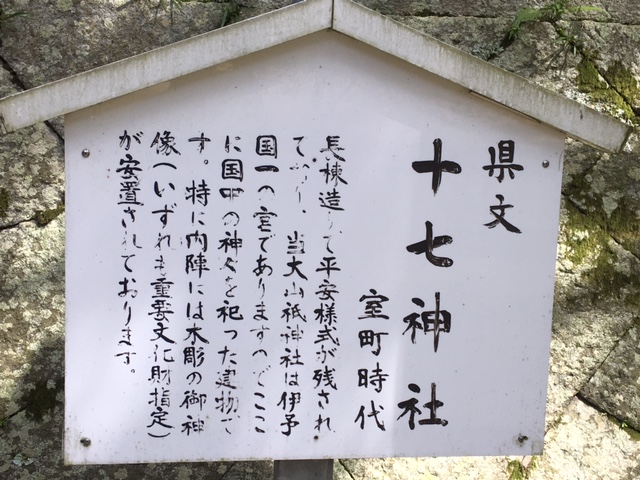 県文
十七神社
室町時代
長棟造りで平安様式が残され
ており、当大山祗神社は伊予
国一の宮でありますのでここ
に国中の神々を祀った建物で
す。特に内陣には木彫の御神
像(いずれも重要文化財指定)
が安置されております。